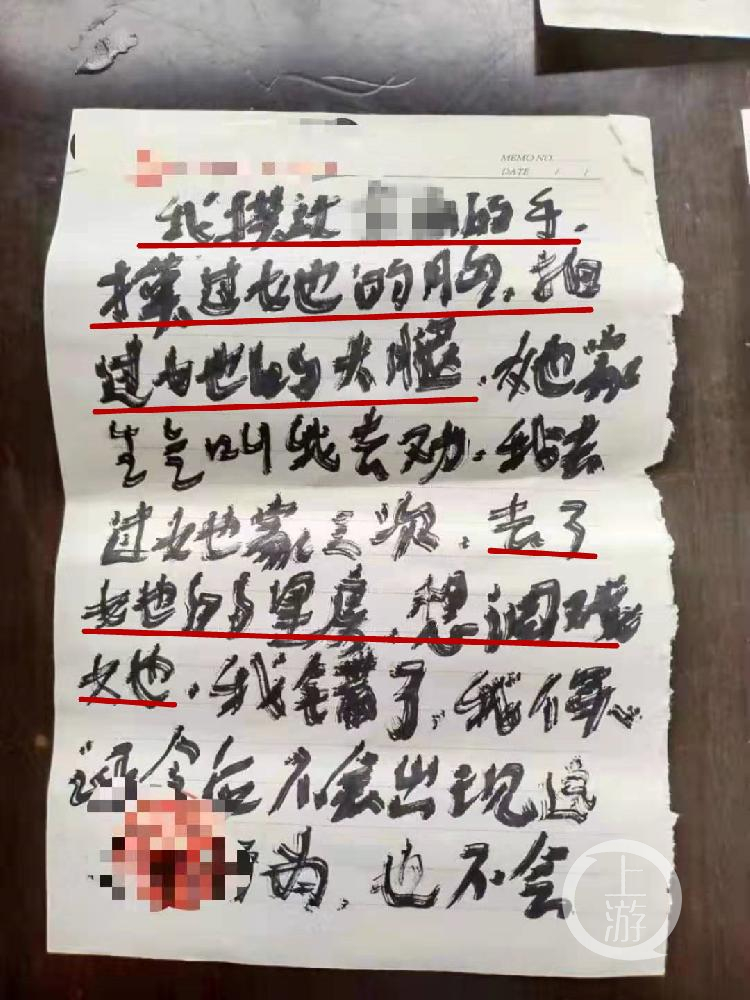 MEMO NO.
DATE / /
我摸过的手.
摸过她的胸.拍
过她的大腿.她家
先生叫我去劝.我去
过她家三次.去了
她的里房.想调戏
她.我错了.我保
证今后不会出现这
为.也不会
上游